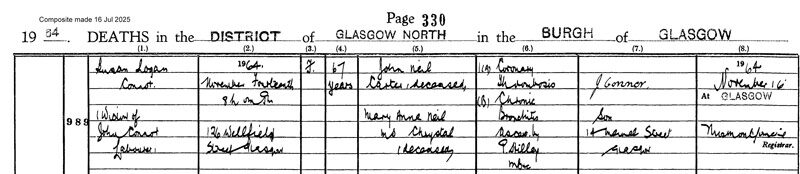 Composite made 16 Jul 2025
Page 330
19 64 DEATHS in the DISTRICT of GLASGOW NORTH in the BURGH of GLASGOW
(1.) (2.) (3.) (4.) (5.) (6.) (7.) (8.)
Susan Logan 1964. F. 67 John Neil (a) Coronary 1964
Connor. November Fourteenth years Carter, deceased, Thrombosis J Connor. November 16
(b) Chronic At GLASGOW
989 (Widow of Mary Anne Neil Bronchitis Son
John Connor 126 Wellfield m/s Chrystal as cert. by 14 Street
Labourer) Street Glasgow (deceased) Glasgow Registrar.